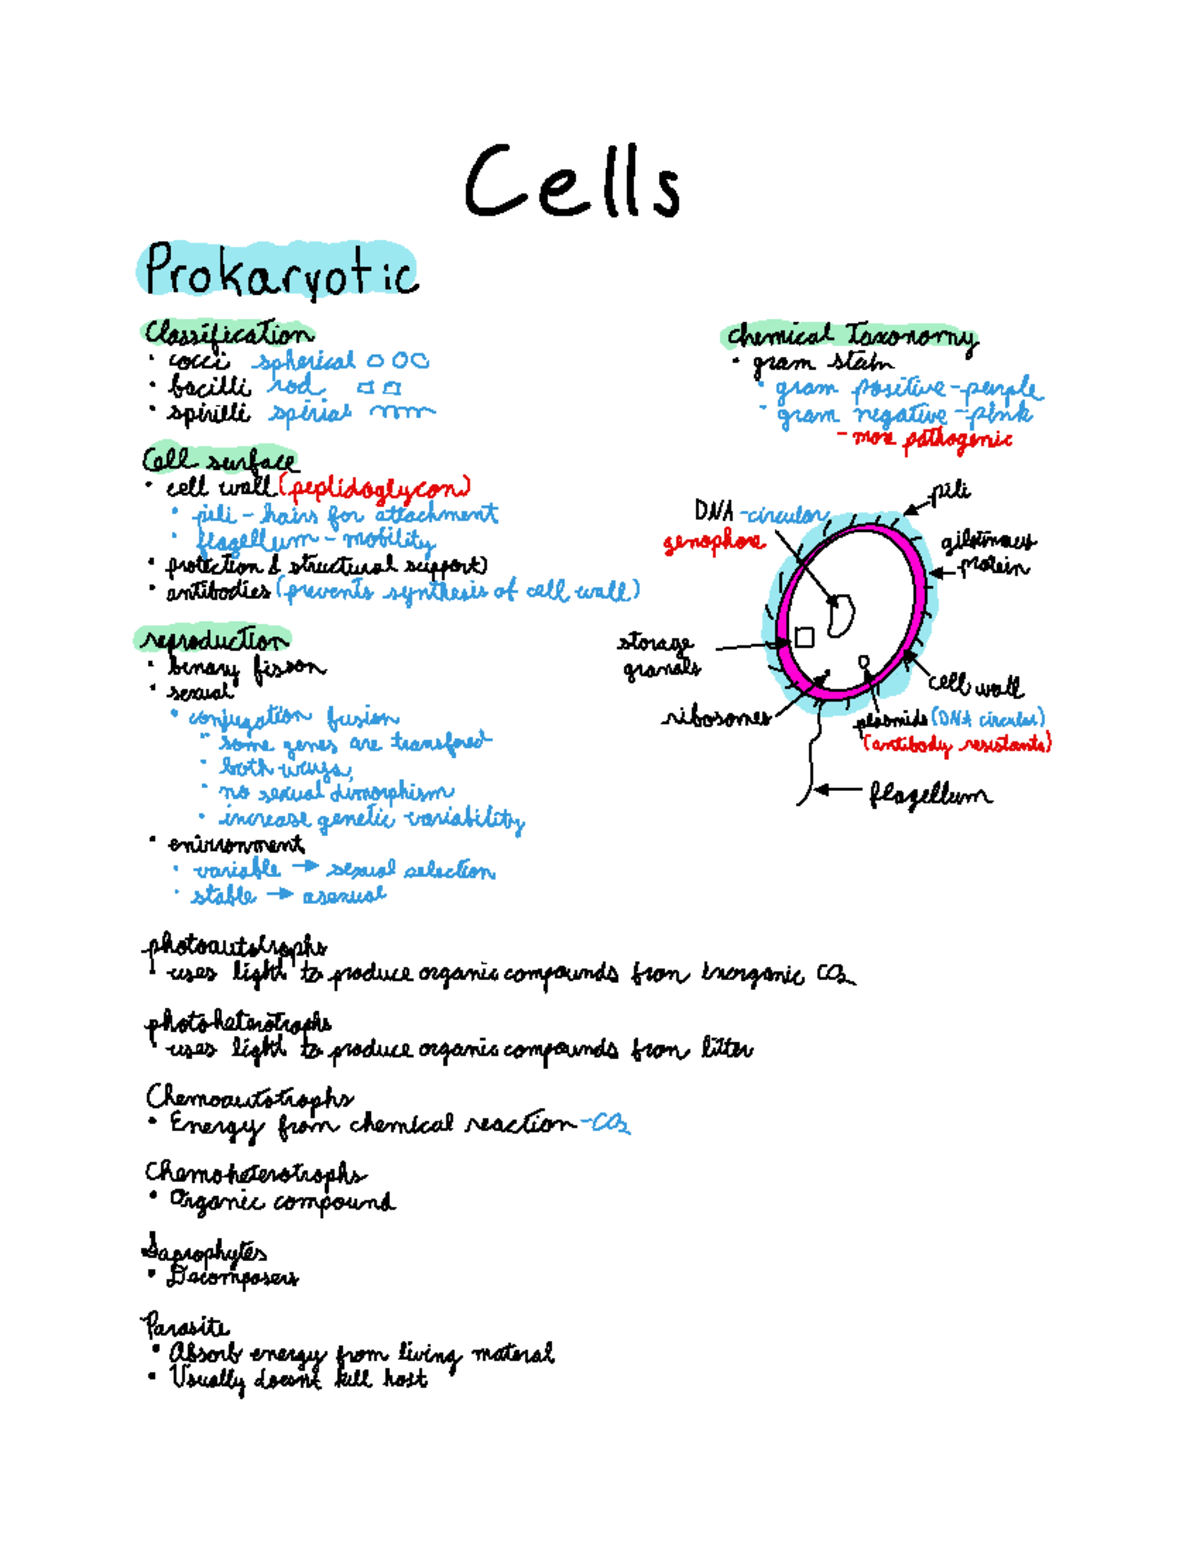 Cells
Prokaryotic
Classification
• cocci spherical
• bacilli rod
• spirilli spirial
Chemical Taxonomy
• gram stain
• gram positive - purple
• gram negative - pink
- more pathogenic
Cell surface
• cell wall (peptidoglycon)
• pili - hairs for attachment
• flagellum - mobility
• protection & structural support)
• antibodies (prevents synthesis of cell wall)
reproduction
• binary fisson
• sexual
• conjugation fusion
• some genes are transfered
• both ways,
• no sexual dimorphism
• increase genetic variability
• environment
• variable → sexual selection
• stable → asexual
DNA - circular
genophore
pili
protein
storage
granals
ribosomes
cell wall
plasmids (DNA circular)
(antibody resistants)
flagellum
photoautotrophs
• uses light to produce organic compounds from inorganic CO2
photoheterotrophs
• uses light to produce organic compounds from litter
Chemoautotrophs
• Energy from chemical reaction - CO2
Chemoheterotrophs
• Organic compound
Saprophytes
• Decomposers
Parasite
• Absorb energy from living materal
• Usually doesnt kill host